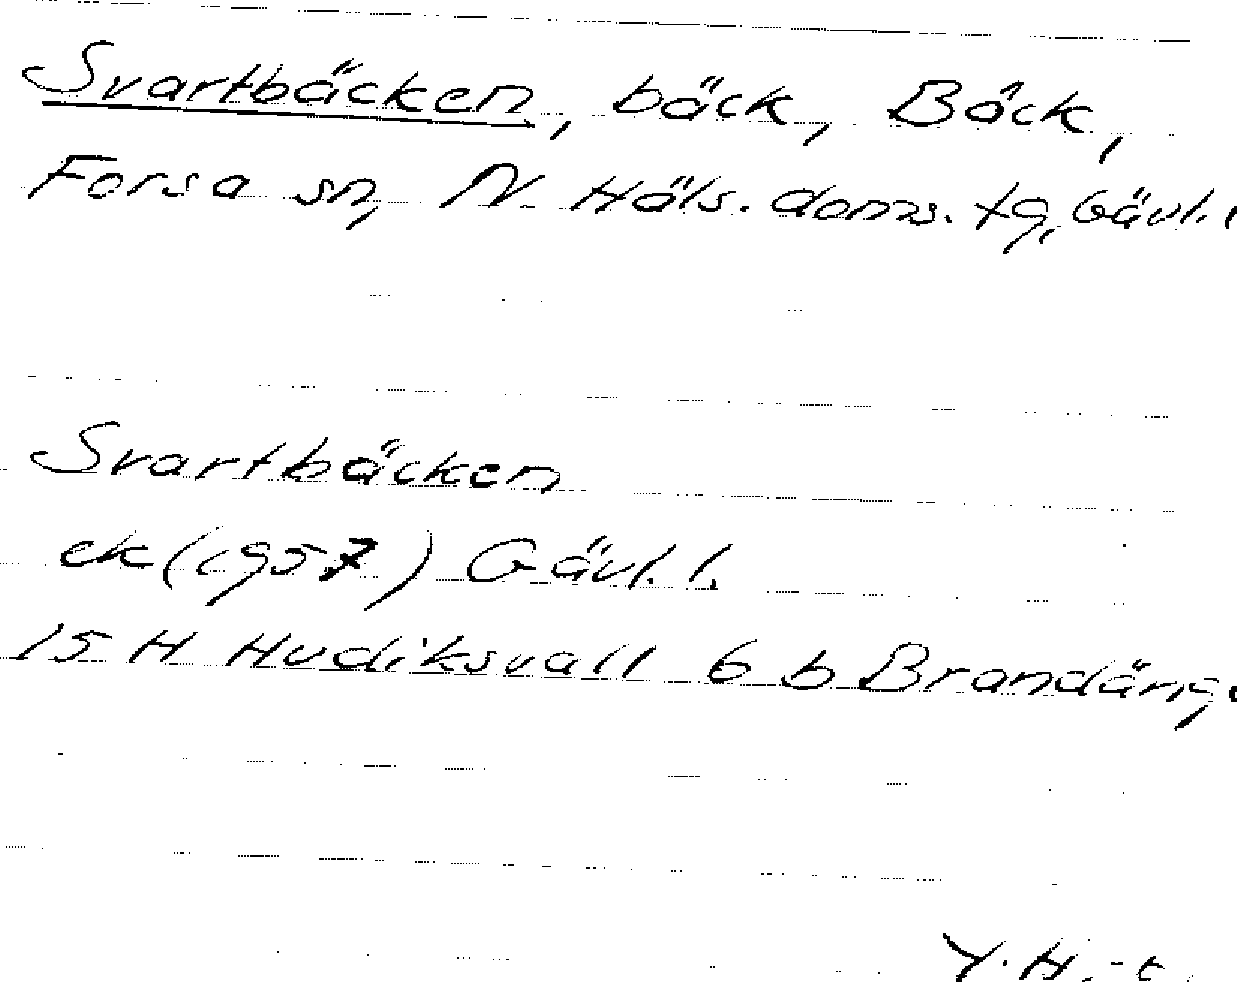 Svartbäcken, bäck, Bäck,
Forsa sn, N. Häls. doms. tg, Gävl. l
Svartbäcken
ek (1957) Gävl. l.
15 H Hudiksvall 6 b Brandäng.
Y. H.-t.